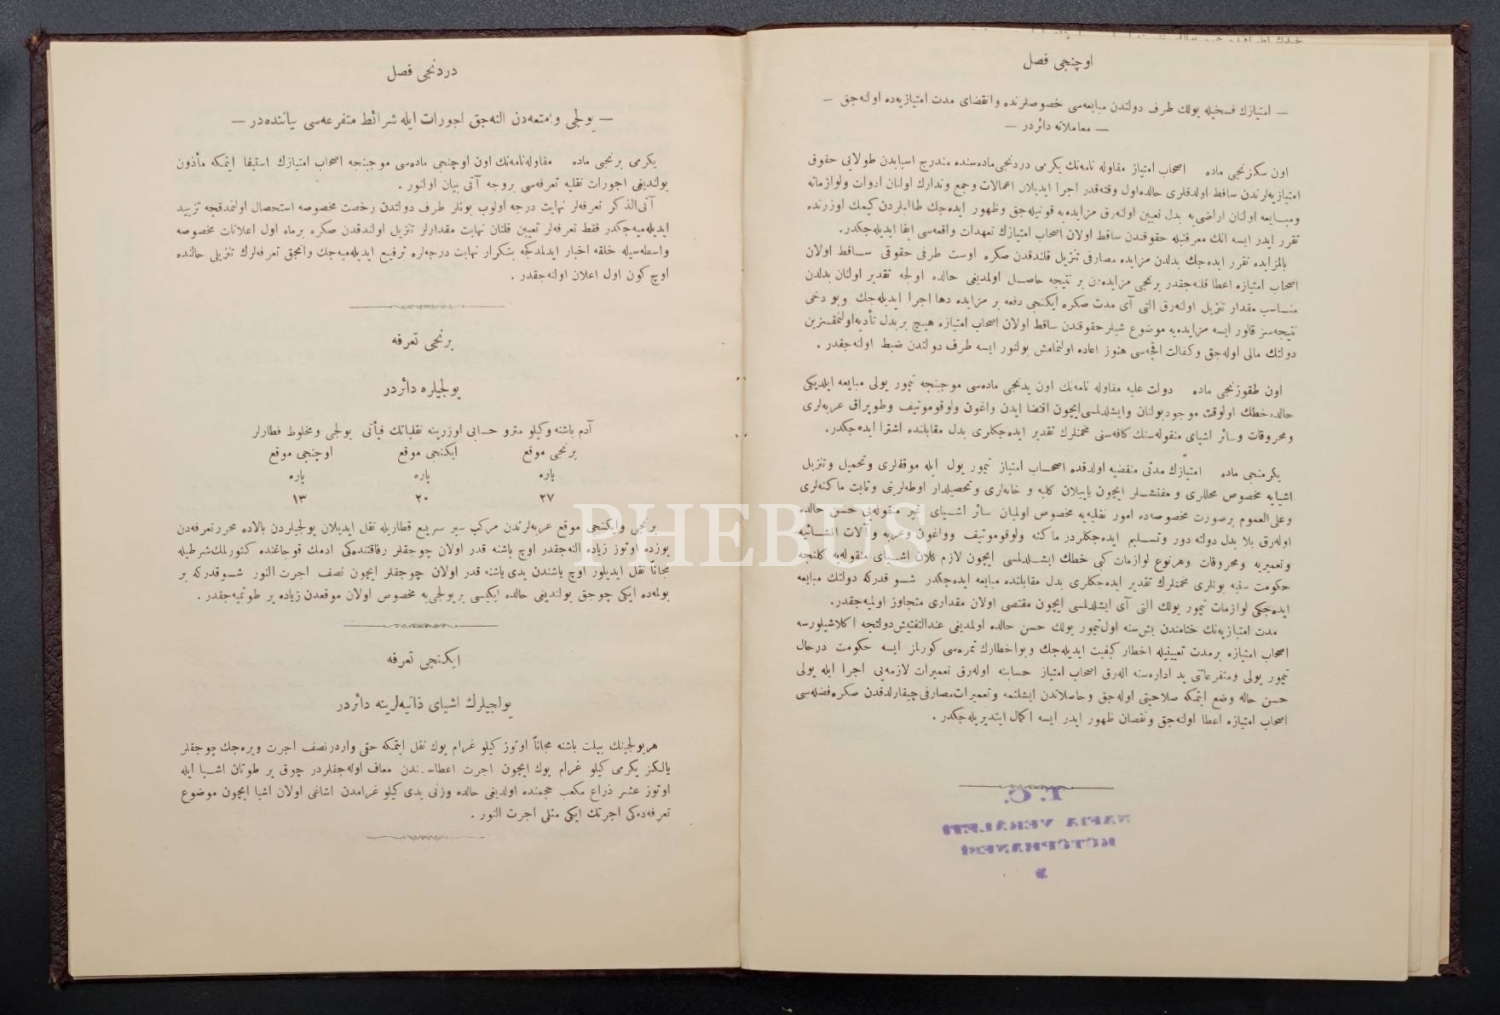 اوچنجی فصل
— امتیازك فسخیله یولك طرف دولتدن مبایعه‌سی خصوصلرنده وانقضای مدت امتیازیه‌ده اوله‌جق —
— معاملاته دائردر —
اون سكزنجی ماده اصحاب امتیاز مقاوله نامه‌نك یكرمی دردنجی ماده‌سنده مندرج اسبابدن طولایی حقوق
امتیازیه‌لرندن ساقط اولدقلری حالده اول وقته‌قدر اجرا ایدیلان اعمالات وجمع وتدارك اولنان ادوات ولوازماته
ومبایعه اولنان اراضی‌یه بدل تعیین اوله‌رق مزایده‌یه قونیله‌جق وظهور ایده‌جك طالبلردن كیمك اوزرنده
تقرر ایدر ایسه انك معرفتیله حقوقندن ساقط اولان اصحاب امتیازك تعهدات واقعه‌سی ایفا ایدیله‌جكدر.
بالمزایده تقرر ایده‌جك بدلدن مزایده مصارفی تنزیل قلندقدن صكره اوست طرفی حقوقی ساقط اولان
اصحاب امتیازه اعطا قلنه‌جقدر برنجی مزایده‌دن بر نتیجه حاصل اولمدیغی حالده اولجه تقدیر اولنان بدلدن
مناسب مقدار تنزیل اوله‌رق التی آی مدت صكره ایكنجی دفعه بر مزایده دها اجرا ایدیله‌جك وبو دخی
نتیجه‌سز قالور ایسه مزایده‌یه موضوع شیلر حقوقندن ساقط اولان اصحاب امتیازه هیچ بر بدل تأدیه اولنمقسزین
دولتك مالی اوله‌جق وكفالت اقچه‌سی هنوز اعاده اولنمامش بولنور ایسه طرف دولتدن ضبط اوله‌جقدر .
اون طقوزنجی ماده دولت علیه مقاوله نامه‌نك اون یدنجی ماده‌سی موجبنجه تیمور یولی مبایعه ایلدیكی
حالده خطك اولوقت موجود بولنان وایشلدلمسی ایچون اقتضا ایدن واغون ولوقوموتیف وطوپراق عربه‌لری
ومحروقات وسائر اشیای منقوله‌سنك كافه‌سنی مخمنلرك تقدیر ایده‌جكلری بدل مقابلنده اشترا ایده‌جكدر.
یكرمنجی ماده امتیازك مدتی منقضیه اولدقده اصحاب امتیاز تیمور یول ایله موقفلری وتحمیل وتنزیل
اشیایه مخصوص محللری و مفتشلر ایچون یاپیلان كلبه و خانه‌لری وتحصیلدار اوطه‌لرینی وثابت ماكنه‌لری
وعلی‌العموم برصورت مخصوصه‌ده امور نقلیه‌یه مخصوص اولمیان سائر اشیای غیر منقوله‌یی حسن حالده
اوله‌رق بلا بدل دولته دور وتسلیم ایده‌جكلردر ماكنه ولوقوموتیف وواغون وعربه وآلات انشائیه
وتعمیریه ومحروقات وهرنوع لوازمات كبی خطك ایشلدلمسی ایچون لازم كلان اشیای منقوله‌یه كلنجه
حكومت سنیه بونلری مخمنلرك تقدیر ایده‌جكلری بدل مقابلنده مبایعه ایده‌جكدر شو قدركه دولتك مبایعه
ایده‌جكی لوازمات تیمور یولك التی آی ایشلدلمسی ایچون مقتضی اولان مقداری متجاوز اولمیه‌جقدر.
مدت امتیازیه‌نك ختامندن بش سنه اول تیمور یولك حسن حالده اولمدیغی عندالتفتیش دولتجه اكلاشیلورسه
اصحاب امتیازه برمدت تعیینیله اخطار كیفیت ایدیله‌جك وبو اخطارك ثمره‌سی كورلمز ایسه حكومت درحال
تیمور یولی ومتفرعاتنی ید اداره‌سنه اله‌رق اصحاب امتیاز حسابنه اوله‌رق تعمیرات لازمه‌یی اجرا ایله یولی
حسن حاله وضع ایتمكه صلاحیتی اوله‌جق وحاصلاتدن ایشلتمه وتعمیرات مصارفی چیقارلدقدن صكره فضله‌سی
اصحاب امتیازه اعطا اولنه‌جق ونقصان ظهور ایدر ایسه اكمال ایتدیریله‌جكدر .
T. C.
NAFIA VEKÂLETI
KÜTÜPHANESI
دردنجی فصل
— یولجی وامتعه‌دن النه‌جق اجورات ایله شرائط متفرعه‌سی بیاننده‌در —
یكرمی برنجی ماده مقاوله‌نامه‌نك اون اوچنجی ماده‌سی موجبنجه اصحاب امتیازك استیفا ایتمكه مأذون
بولندیغی اجورات نقلیه تعرفه‌سی بروجه آتی بیان اولنور .
آتی‌الذكر تعرفه‌لر نهایت درجه اولوب بونلر طرف دولتدن رخصت مخصوصه استحصال اولنمدقجه تزیید
ایدیله‌میه‌جكدر فقط تعرفه‌لر تعیین قلنان نهایت مقدارلر تنزیل اولندقدن صكره برماه اول اعلانات مخصوصه
واسطه‌سیله خلقه اخبار ایدلمدكجه بتكرار نهایت درجه‌لره ترفیع ایدیله‌میه‌جك وانجق تعرفه‌لرك تنزیلی حالنده
اوچ كون اول اعلان اولنه‌جقدر .
برنجی تعرفه
یولجیلره دائردر
آدم باشنه وكیلو مترو حسابی اوزرینه نقلیاتك فیأتی یولجی ومخلوط قطارلر
برنجی موقع ایكنجی موقع اوچنجی موقع
پاره پاره پاره
٢٧ ٢٠ ١٣
برنجی وایكنجی موقع عربه‌لرندن مركب سیر سریع قطاریله نقل ایدیلان یولجیلردن بالاده محرر تعرفه‌دن
یوزده اوتوز زیاده النه‌جقدر اوچ یاشنه قدر اولان چوجقلر رفاقتنده‌كی ادمك قوجاغنده كتورلمك شرطیله
مجاناً نقل ایدیلور اوچ یاشندن یدی یاشنه قدر اولان چوجقلر ایچون نصف اجرت النور شوقدركه بر
بولمه‌ده ایكی چوجق بولندیغی حالده ایكیسی بر یولجی‌یه مخصوص اولان موقعدن زیاده یر طوتمیه‌جقدر .
ایكنجی تعرفه
یولجیلرك اشیای ذاتیه‌لرینه دائردر
هر یولجینك بیلت باشنه مجاناً اوتوز كیلو غرام یوك نقل ایتمكه حقی واردر نصف اجرت ویره‌جك چوجقلر
یالكز یكرمی كیلو غرام یوك ایچون اجرت اعطاسندن معاف اوله‌جقلردر چوق یر طوتان اشیا ایله
اوتوز عشر ذراع مكعب حجمنده اولدیغی حالده وزنی یدی كیلو غرامدن اشاغی اولان اشیا ایچون موضوع
تعرفه‌ده‌كی اجرتك ایكی مثلی اجرت النور .
PHEBUS